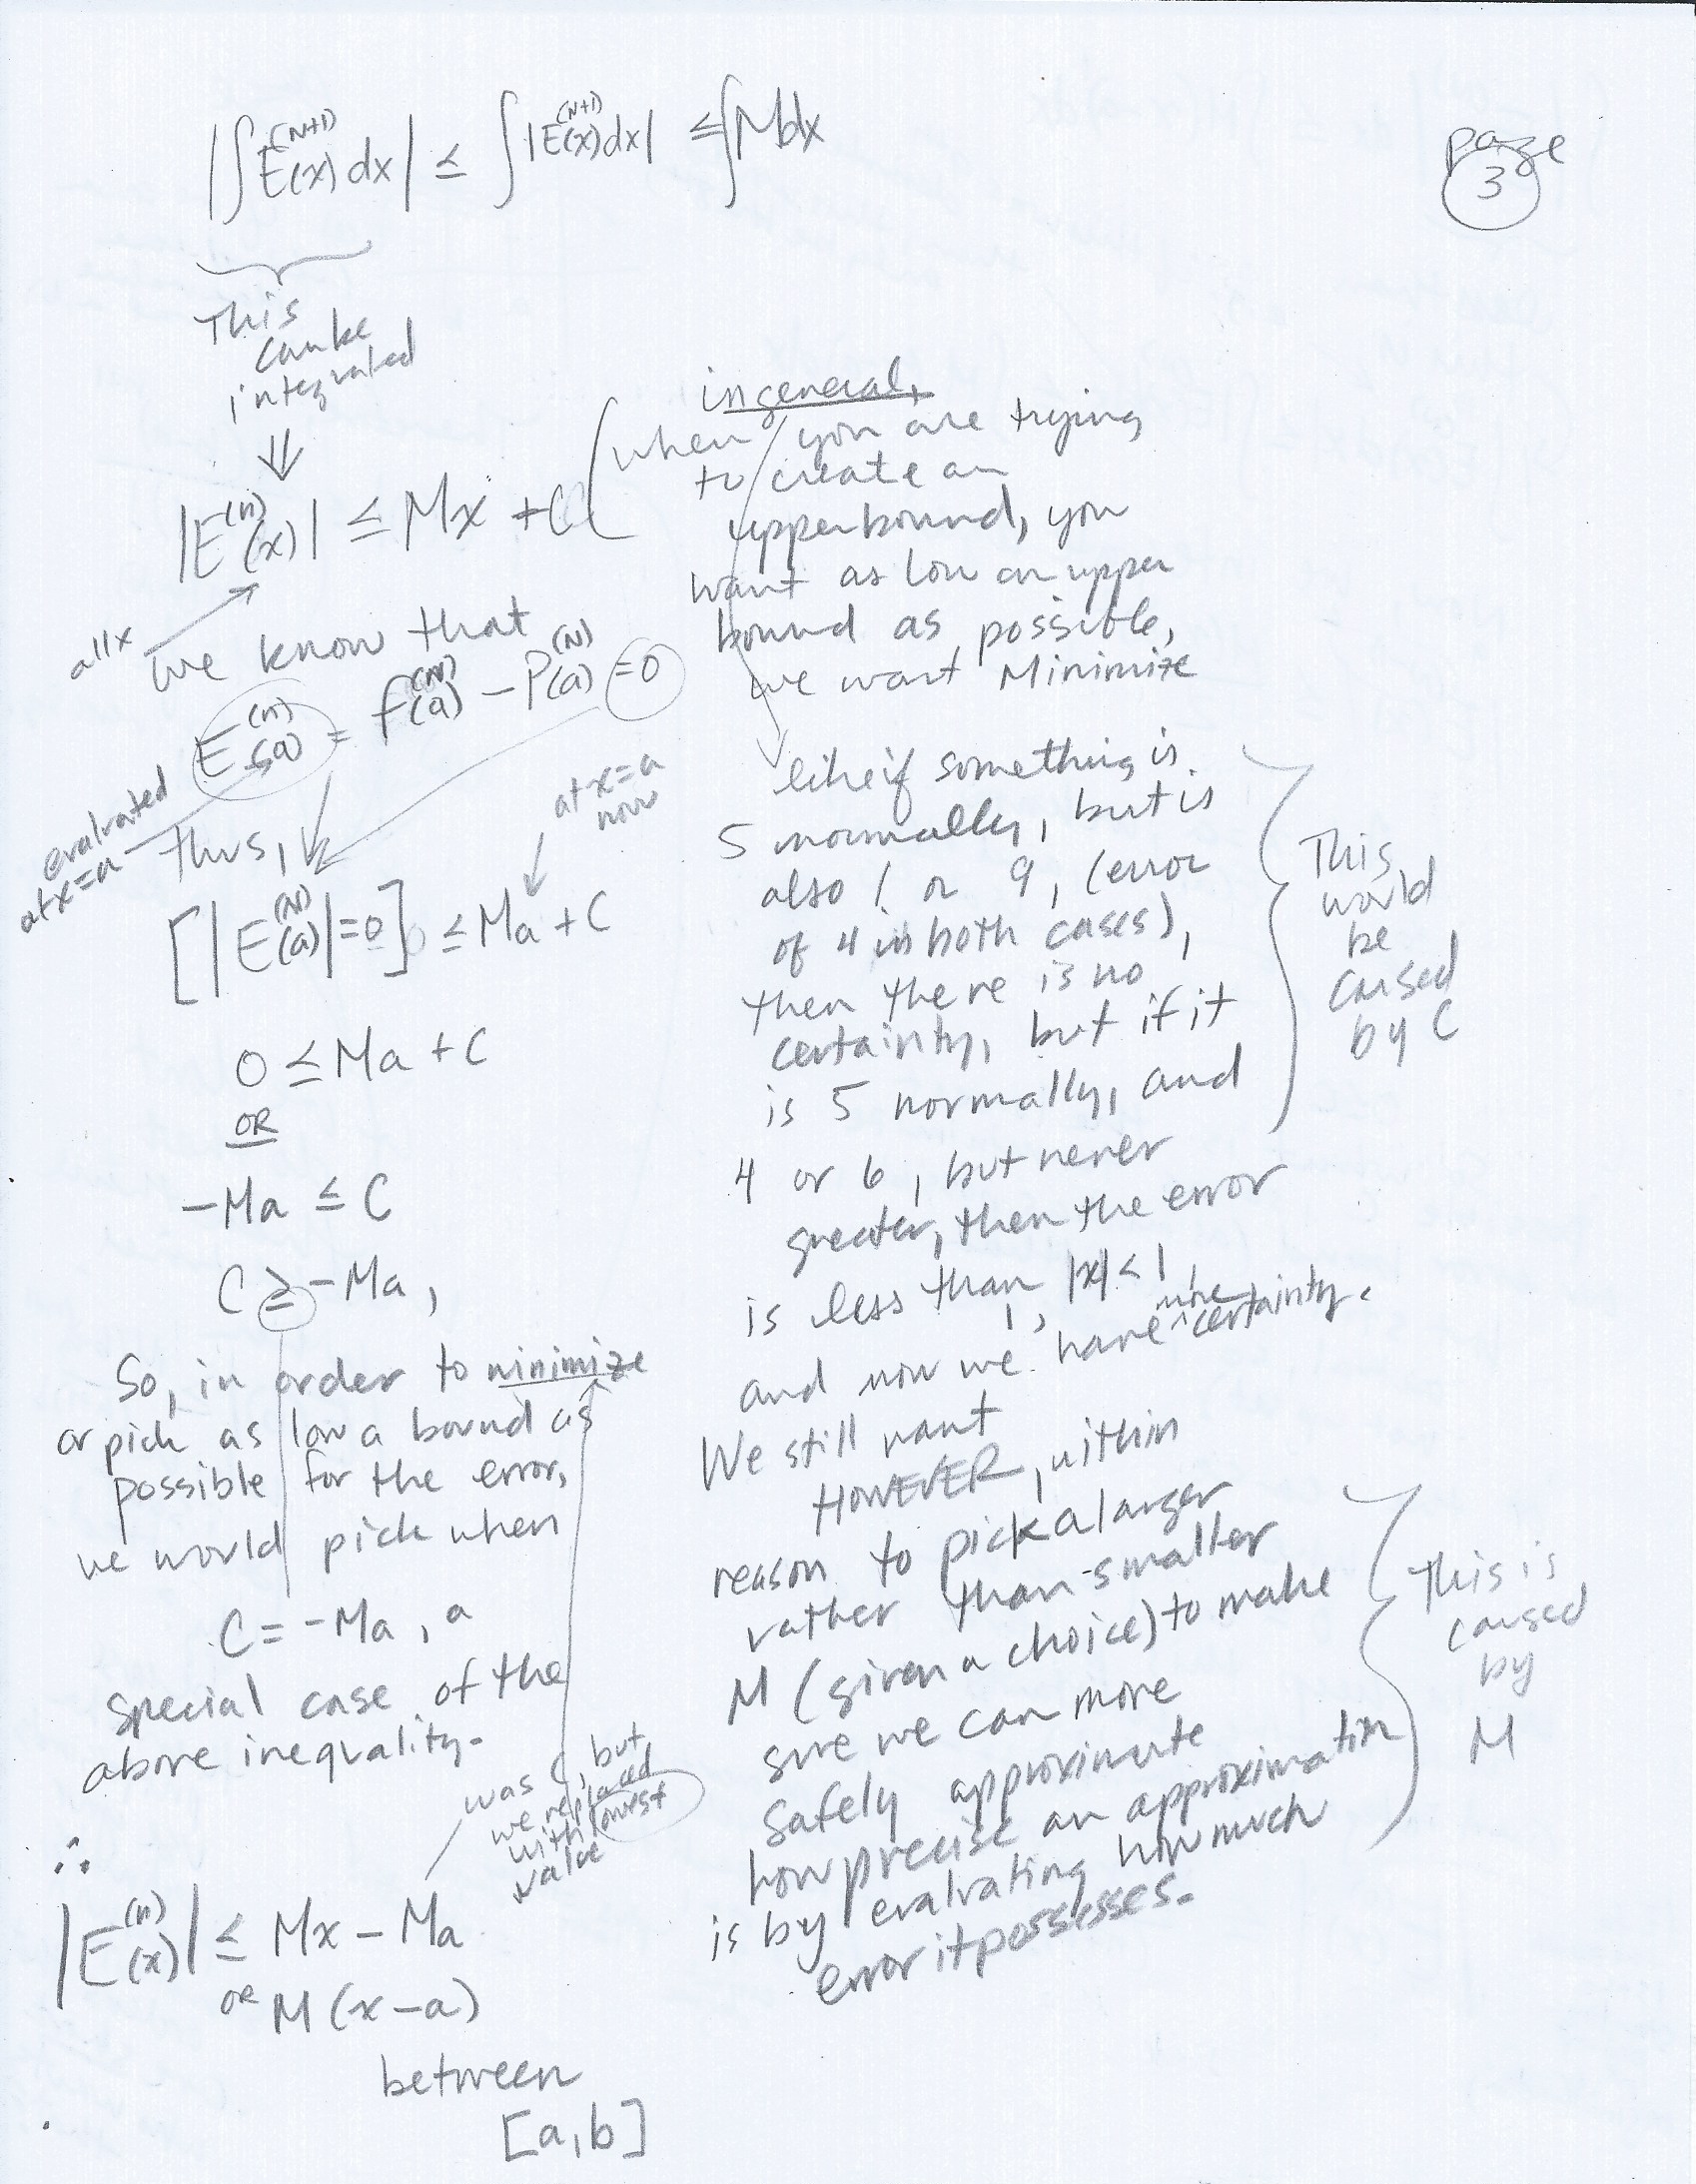 page
3
|∫E^(N+1)(x) dx| ≤ ∫|E^(N+1)(x) dx| ≤ ∫M dx
This
can be
integrated
⇓
|E^(n)(x)| ≤ Mx + C
all x
we know that
E^(n)(a) = f^(N)(a) – P^(N)(a) = 0
evaluated
at x=a
thus,
at x=a
now
[|E^(N)(a)| = 0] ≤ Ma + C
0 ≤ Ma + C
OR
–Ma ≤ C
C ≥ –Ma,
So, in order to minimize
or pick as low a bound as
possible for the error,
we would pick when
C = –Ma, a
special case of the
above inequality.
was C, but
we replaced
with lowest
value
∴
|E^(n)(x)| ≤ Mx – Ma
or M(x–a)
between
[a,b]
in general,
when you are trying
to create an
upperbound, you
want as low an upper
bound as possible,
we want Minimize
like if something is
5 normally, but is
also 1 or 9, (error
of 4 in both cases),
then there is no
certainty, but if it
is 5 normally, and
4 or 6, but never
greater, then the error
is less than 1, |x|<1,
and now we have more certainty.
This
would
be
caused
by C
We still want
HOWEVER, within
reason to pick a larger
rather than smaller
M (given a choice) to make
sure we can more
safely approximate
how precise an approximation
is by evaluating how much
error it possesses.
This is
caused
by
M